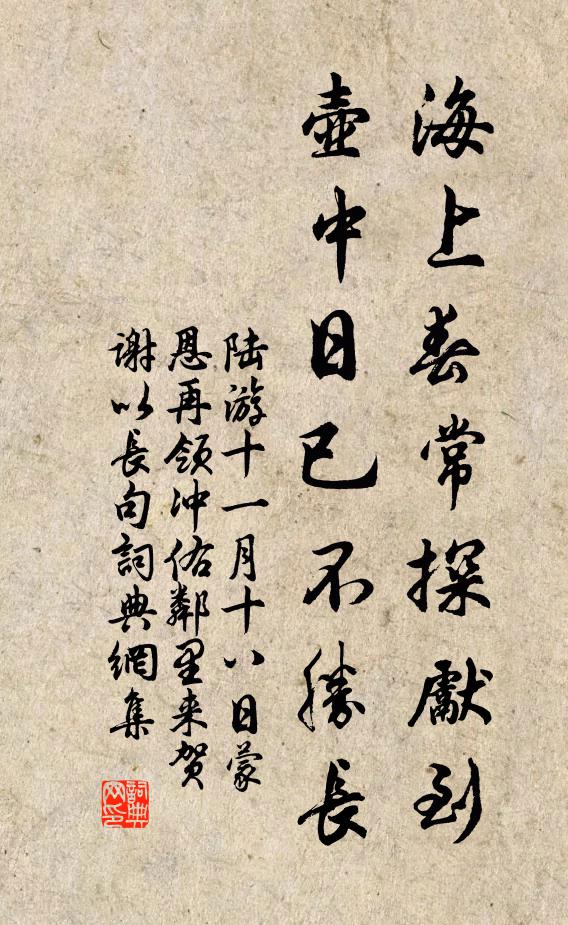 海上春常探獻到
壺中日已不勝長
陆游十一月十八日蒙
恩再领冲佑鄰里来贺
谢以長句詞典網集
詞典
网印